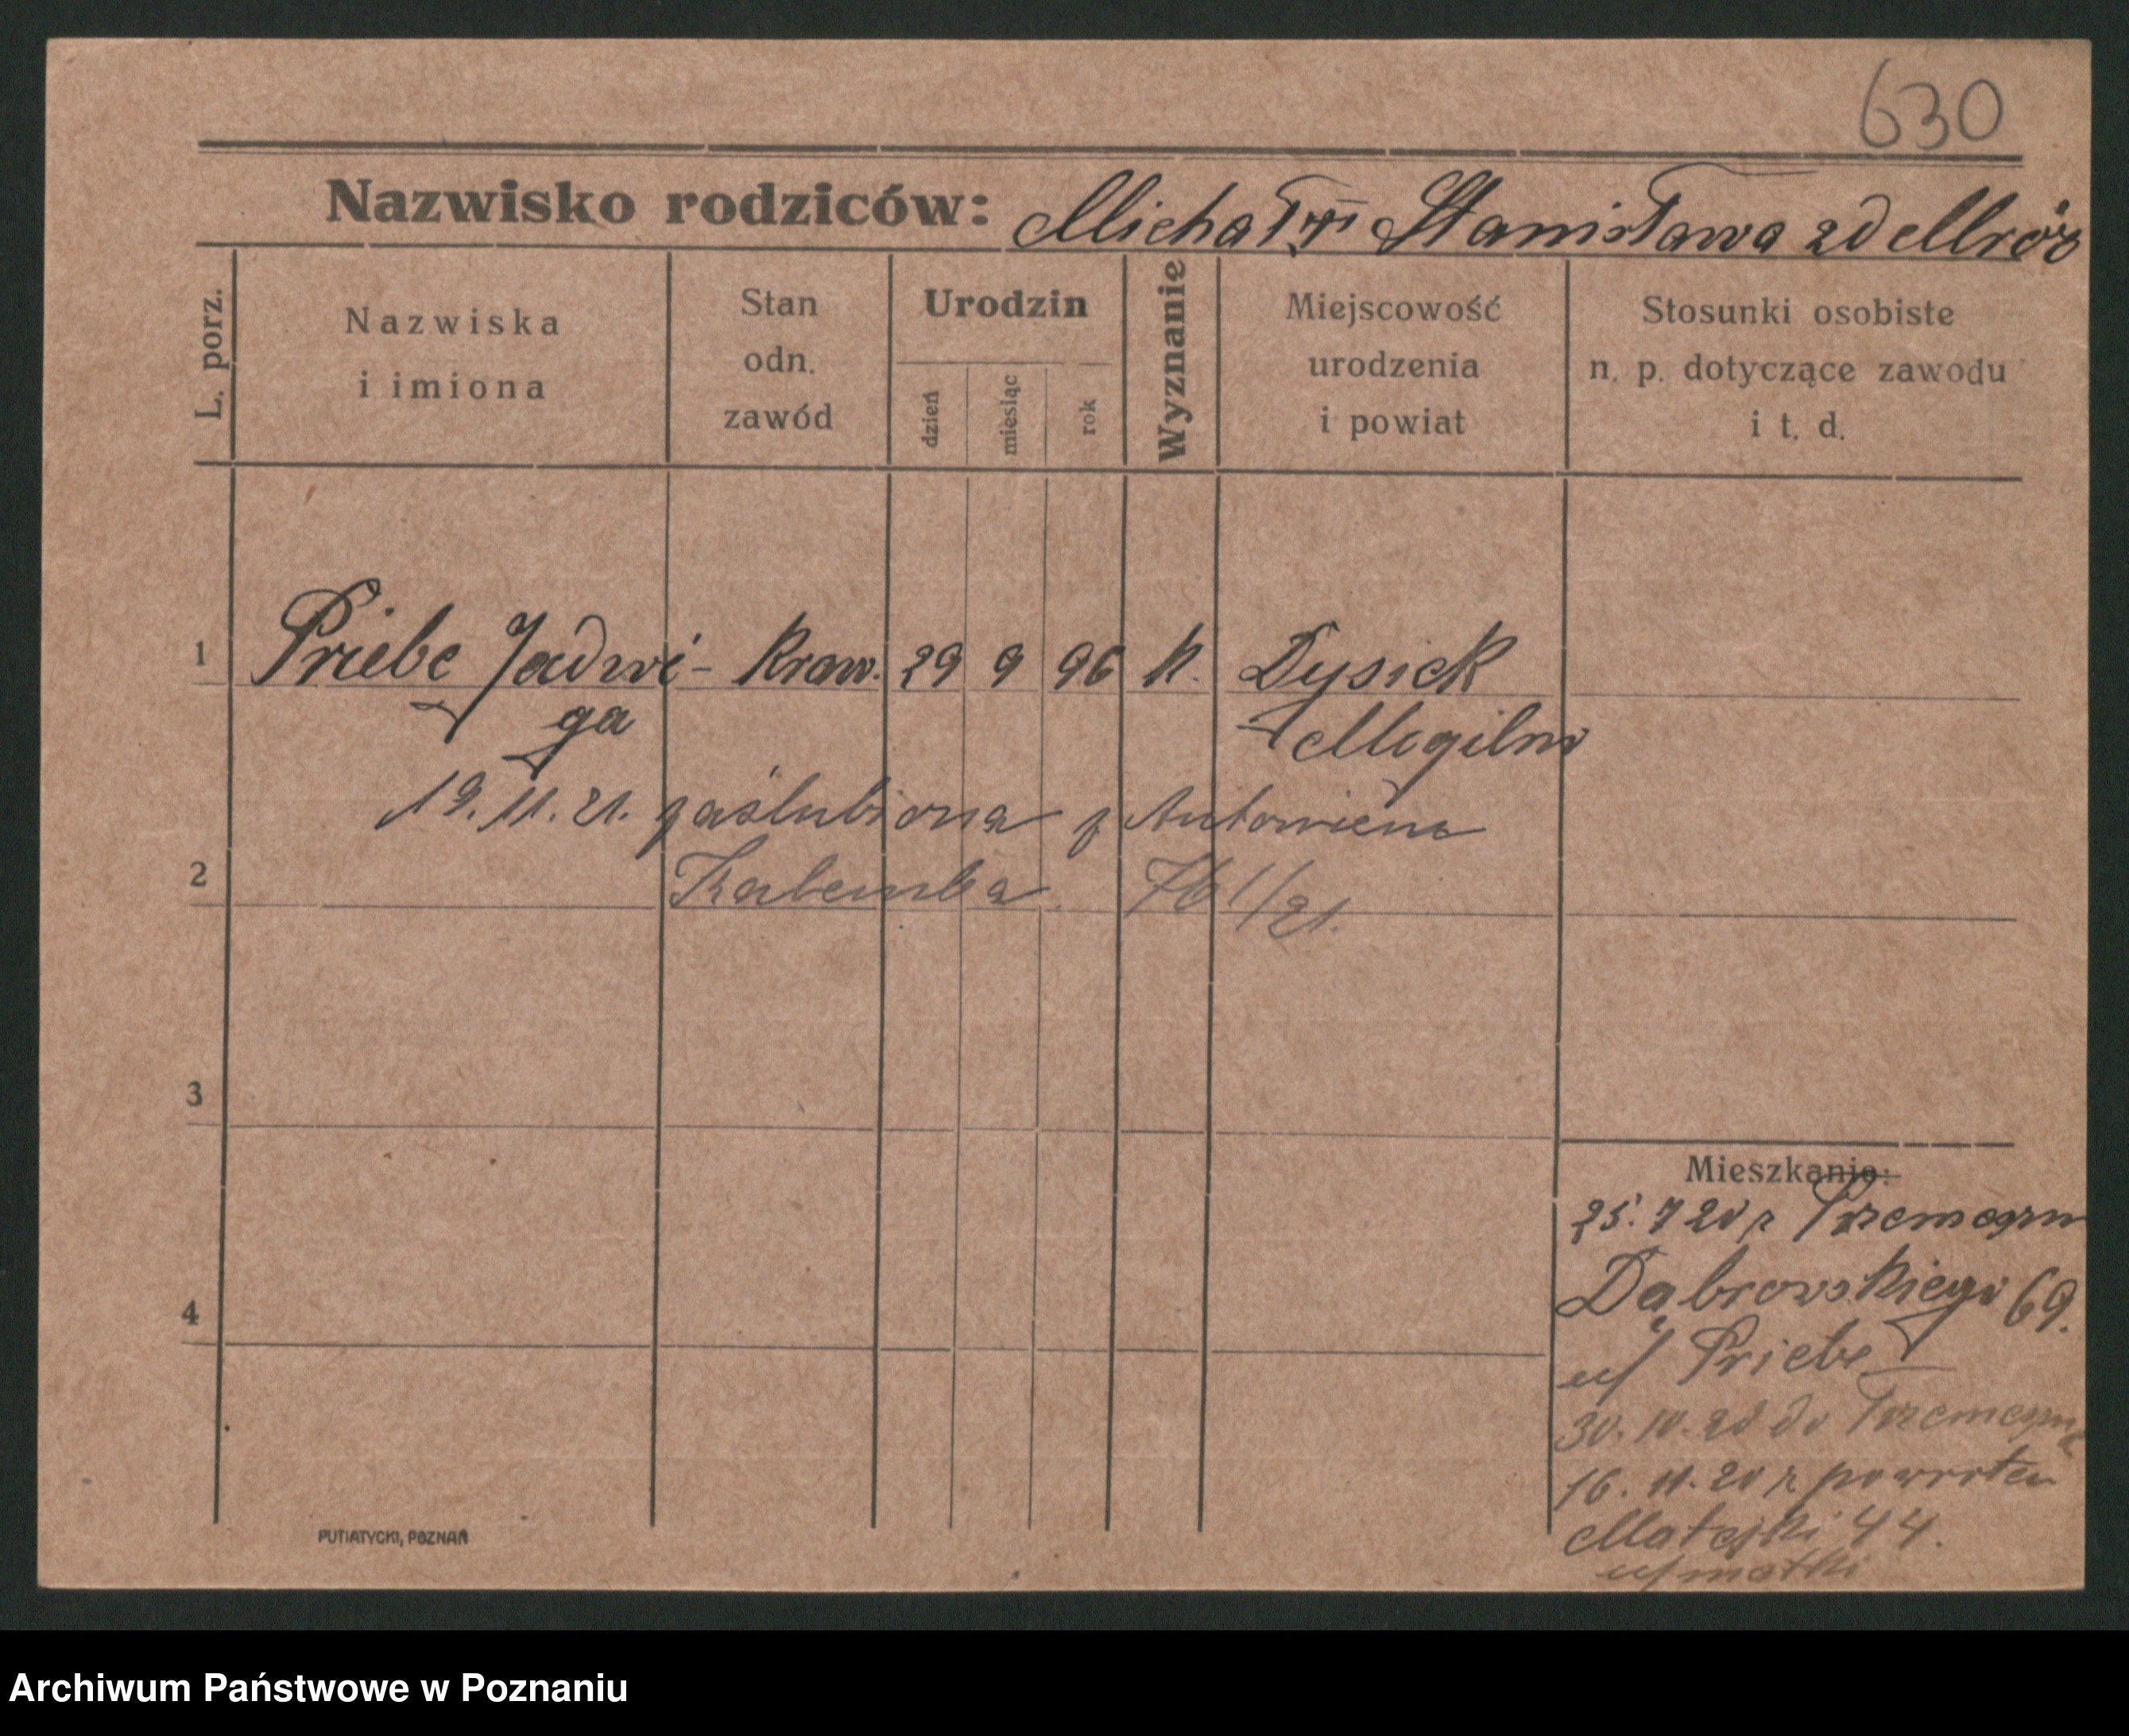 630
Nazwisko rodziców: Michał i Stanisława zd Mróz
L. porz.
Nazwiska i imiona
Stan odn. zawód
Urodzin
dzień miesiąc rok
Wyznanie
Miejscowość urodzenia i powiat
Stosunki osobiste n. p. dotyczące zawodu i t. d.
1 Priebe Jadwi- Kraw. 29 9 96 K. Dysiek
ga Mogilno
19.11.21. zaślubiona z Antoniem
2 761/21.
3
4
Mieszkanie:
25.7 20 z Trzemeszn
Dąbrowskiego 69.
u/ Priebe
30.10.20 do Trzemeszna
16.11.20 z powrotem
Matejki 44.
u/ matki
PUTIATYCKI, POZNAŃ
Archiwum Państwowe w Poznaniu